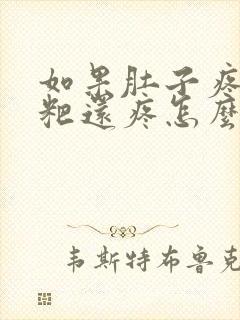 如果肚子疼
粑還疼怎麼
韦斯特布鲁克